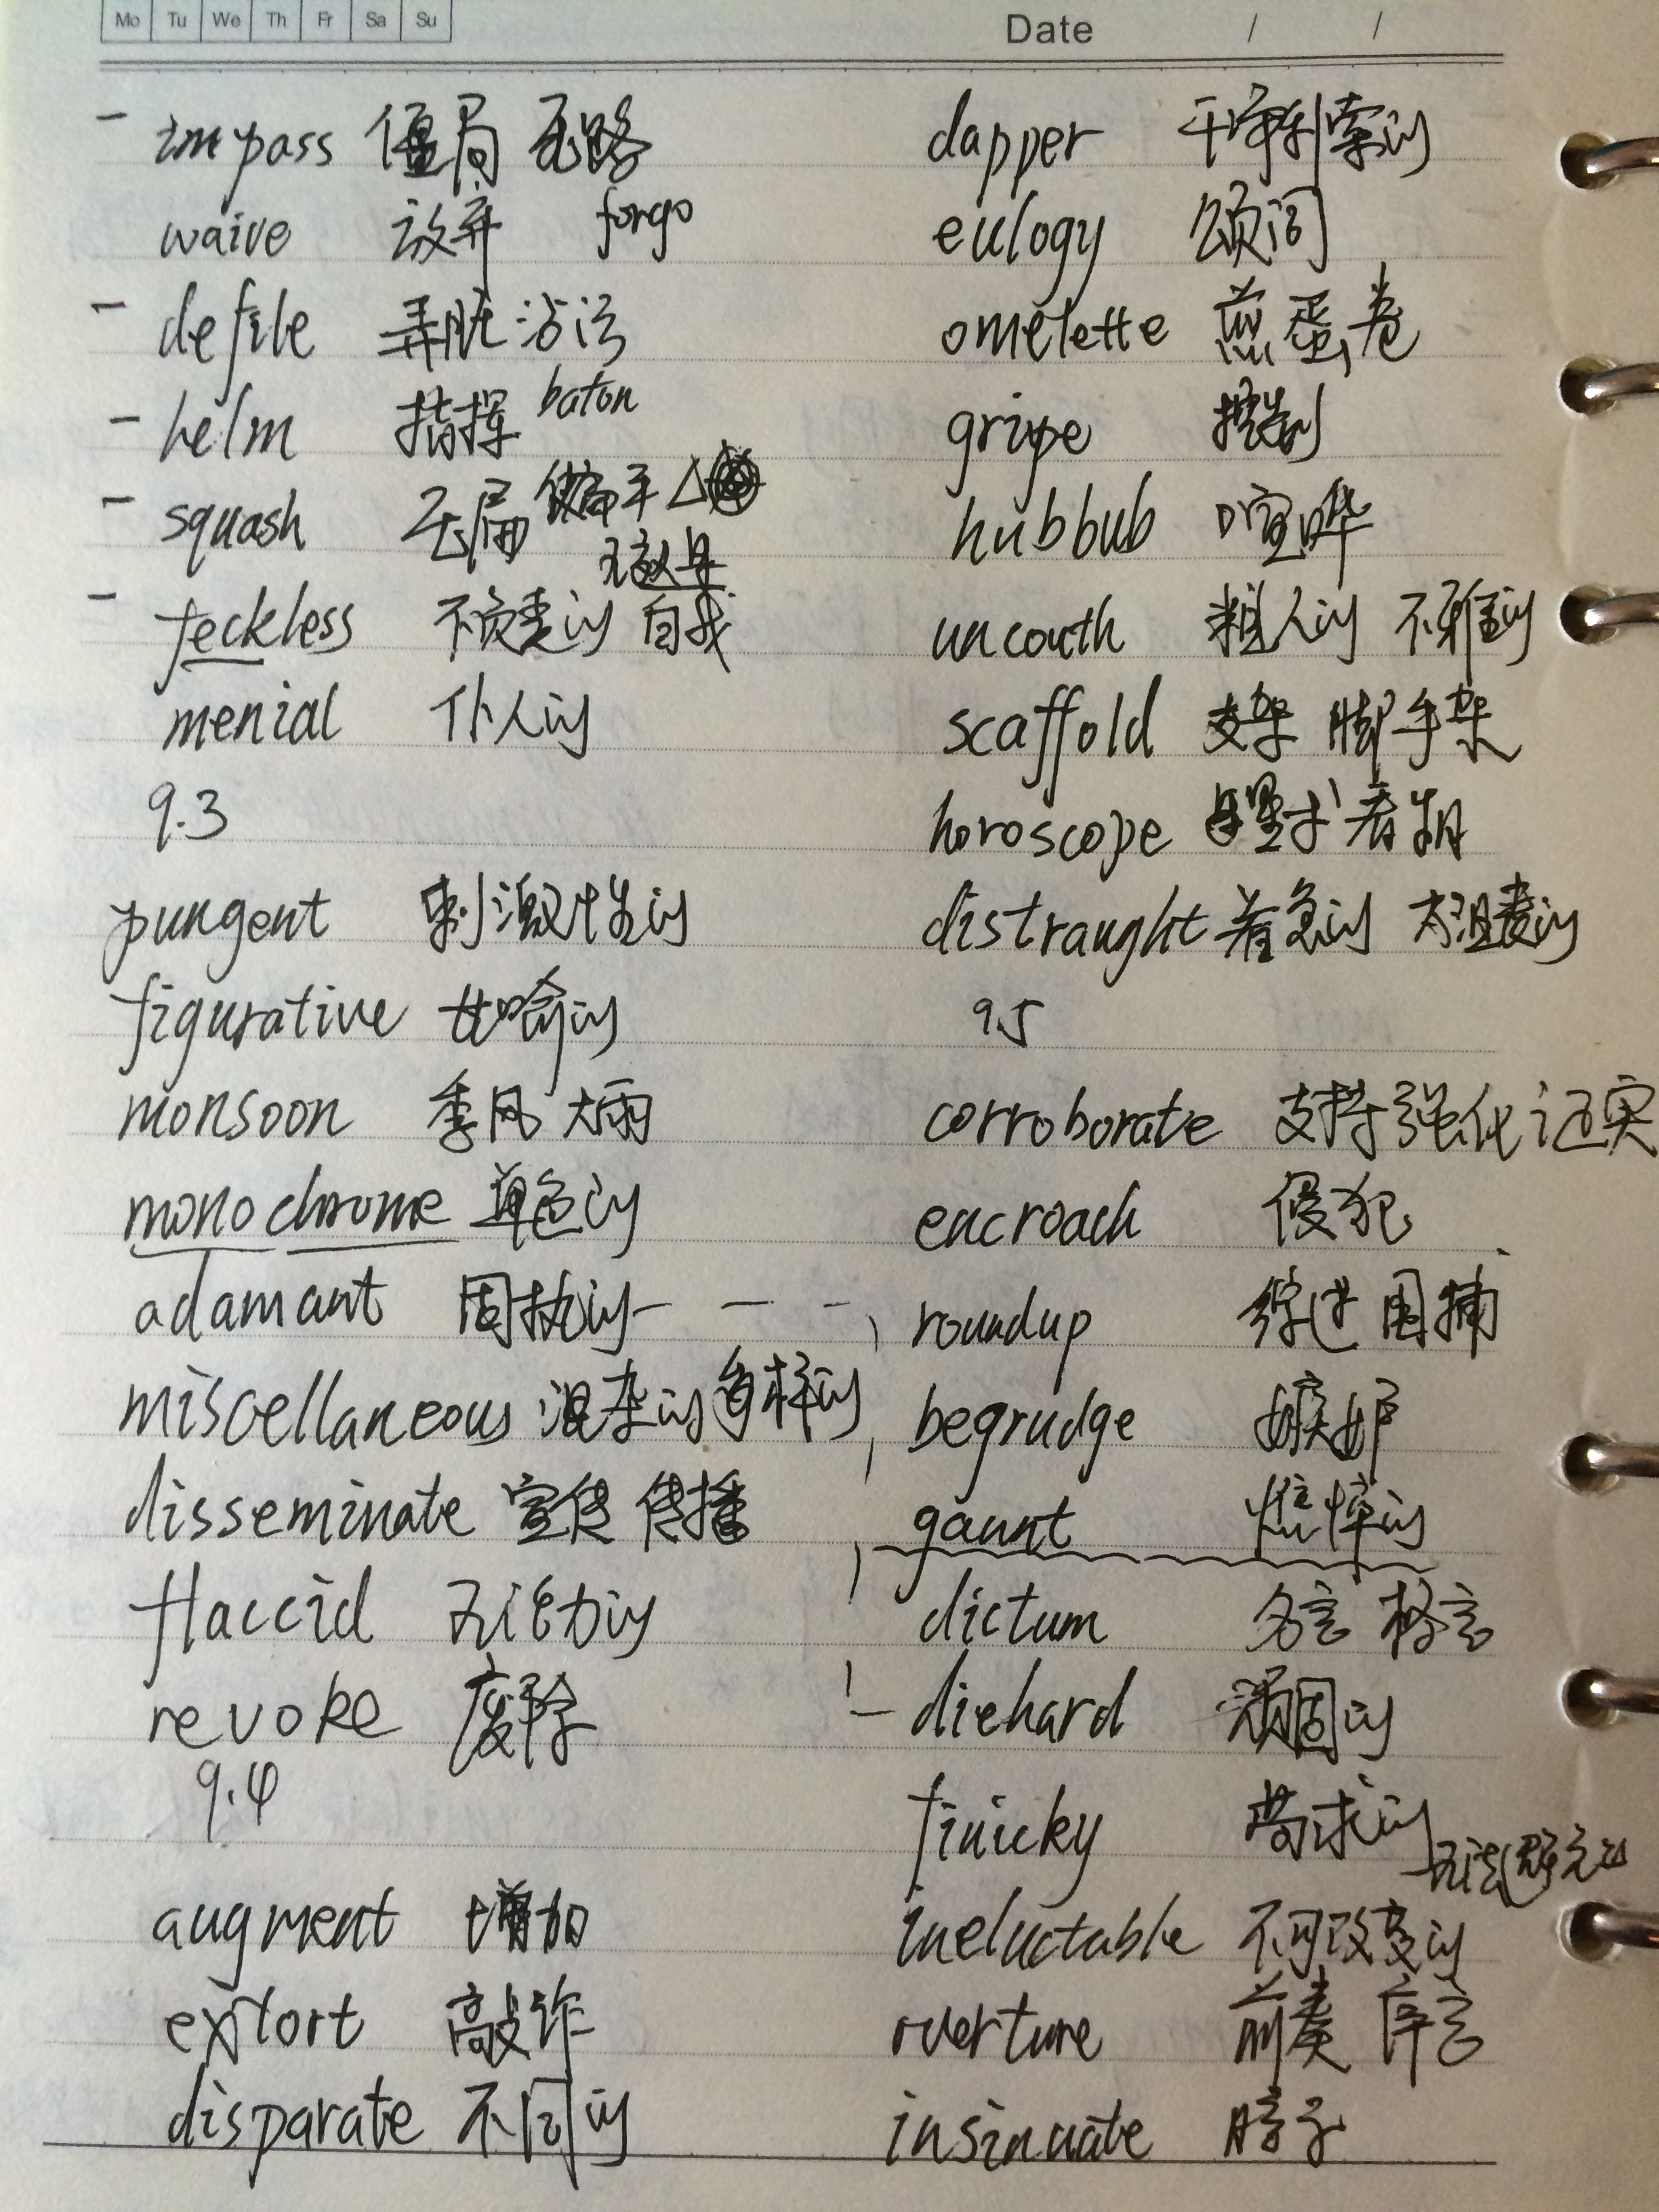 Mo Tu We Th Fr Sa Su
Date / /
impass 僵局 死路
waive 放弃 forgo
defile 弄脏 沾污
helm 指挥 baton
squash 压扁
feckless 不负责的 自我
menial 仆人的
9.3
pungent 刺激性的
figurative 比喻的
monsoon 季风 大雨
monochrome 单色的
adamant 固执的
miscellaneous 混杂的 各样的
disseminate 宣传 传播
flaccid 无活力的
revoke 废除
9.4
augment 增加
extort 敲诈
disparate 不同的
dapper 干净利索的
eulogy 颂词
omelette 煎蛋卷
gripe
hubbub 喧哗
uncouth 粗人的 不雅的
scaffold 支架 脚手架
horoscope 星术 看相
distraught 着急的
9.5
corroborate 支持 强化 证实
encroach 侵犯
roundup 综述 围捕
begrudge 嫉妒
gaunt 憔悴的
dictum 名言 格言
diehard 顽固的
finicky 苛求的
ineluctable 不可改变的
overture 前奏 序言
insinuate 暗示